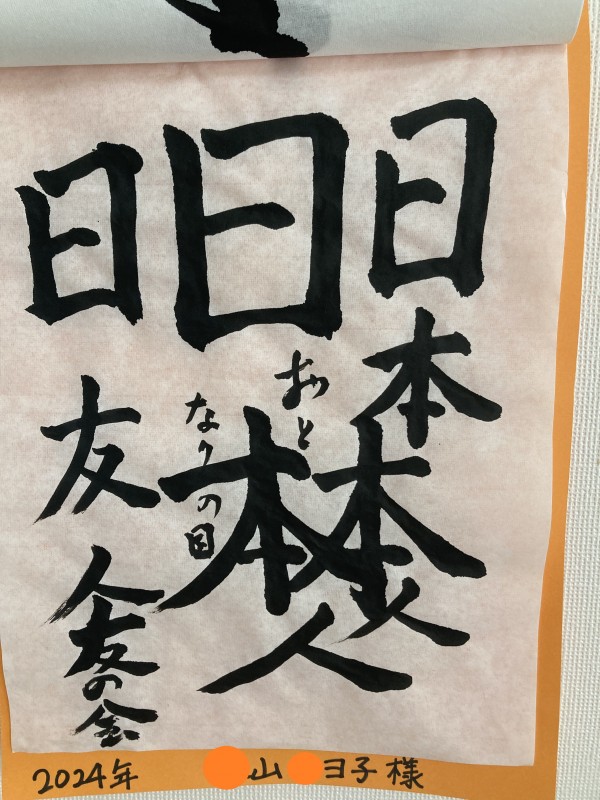 日本本人
日本人
おと
なりの日
日友人友の会
2024年
山 ヨ子様